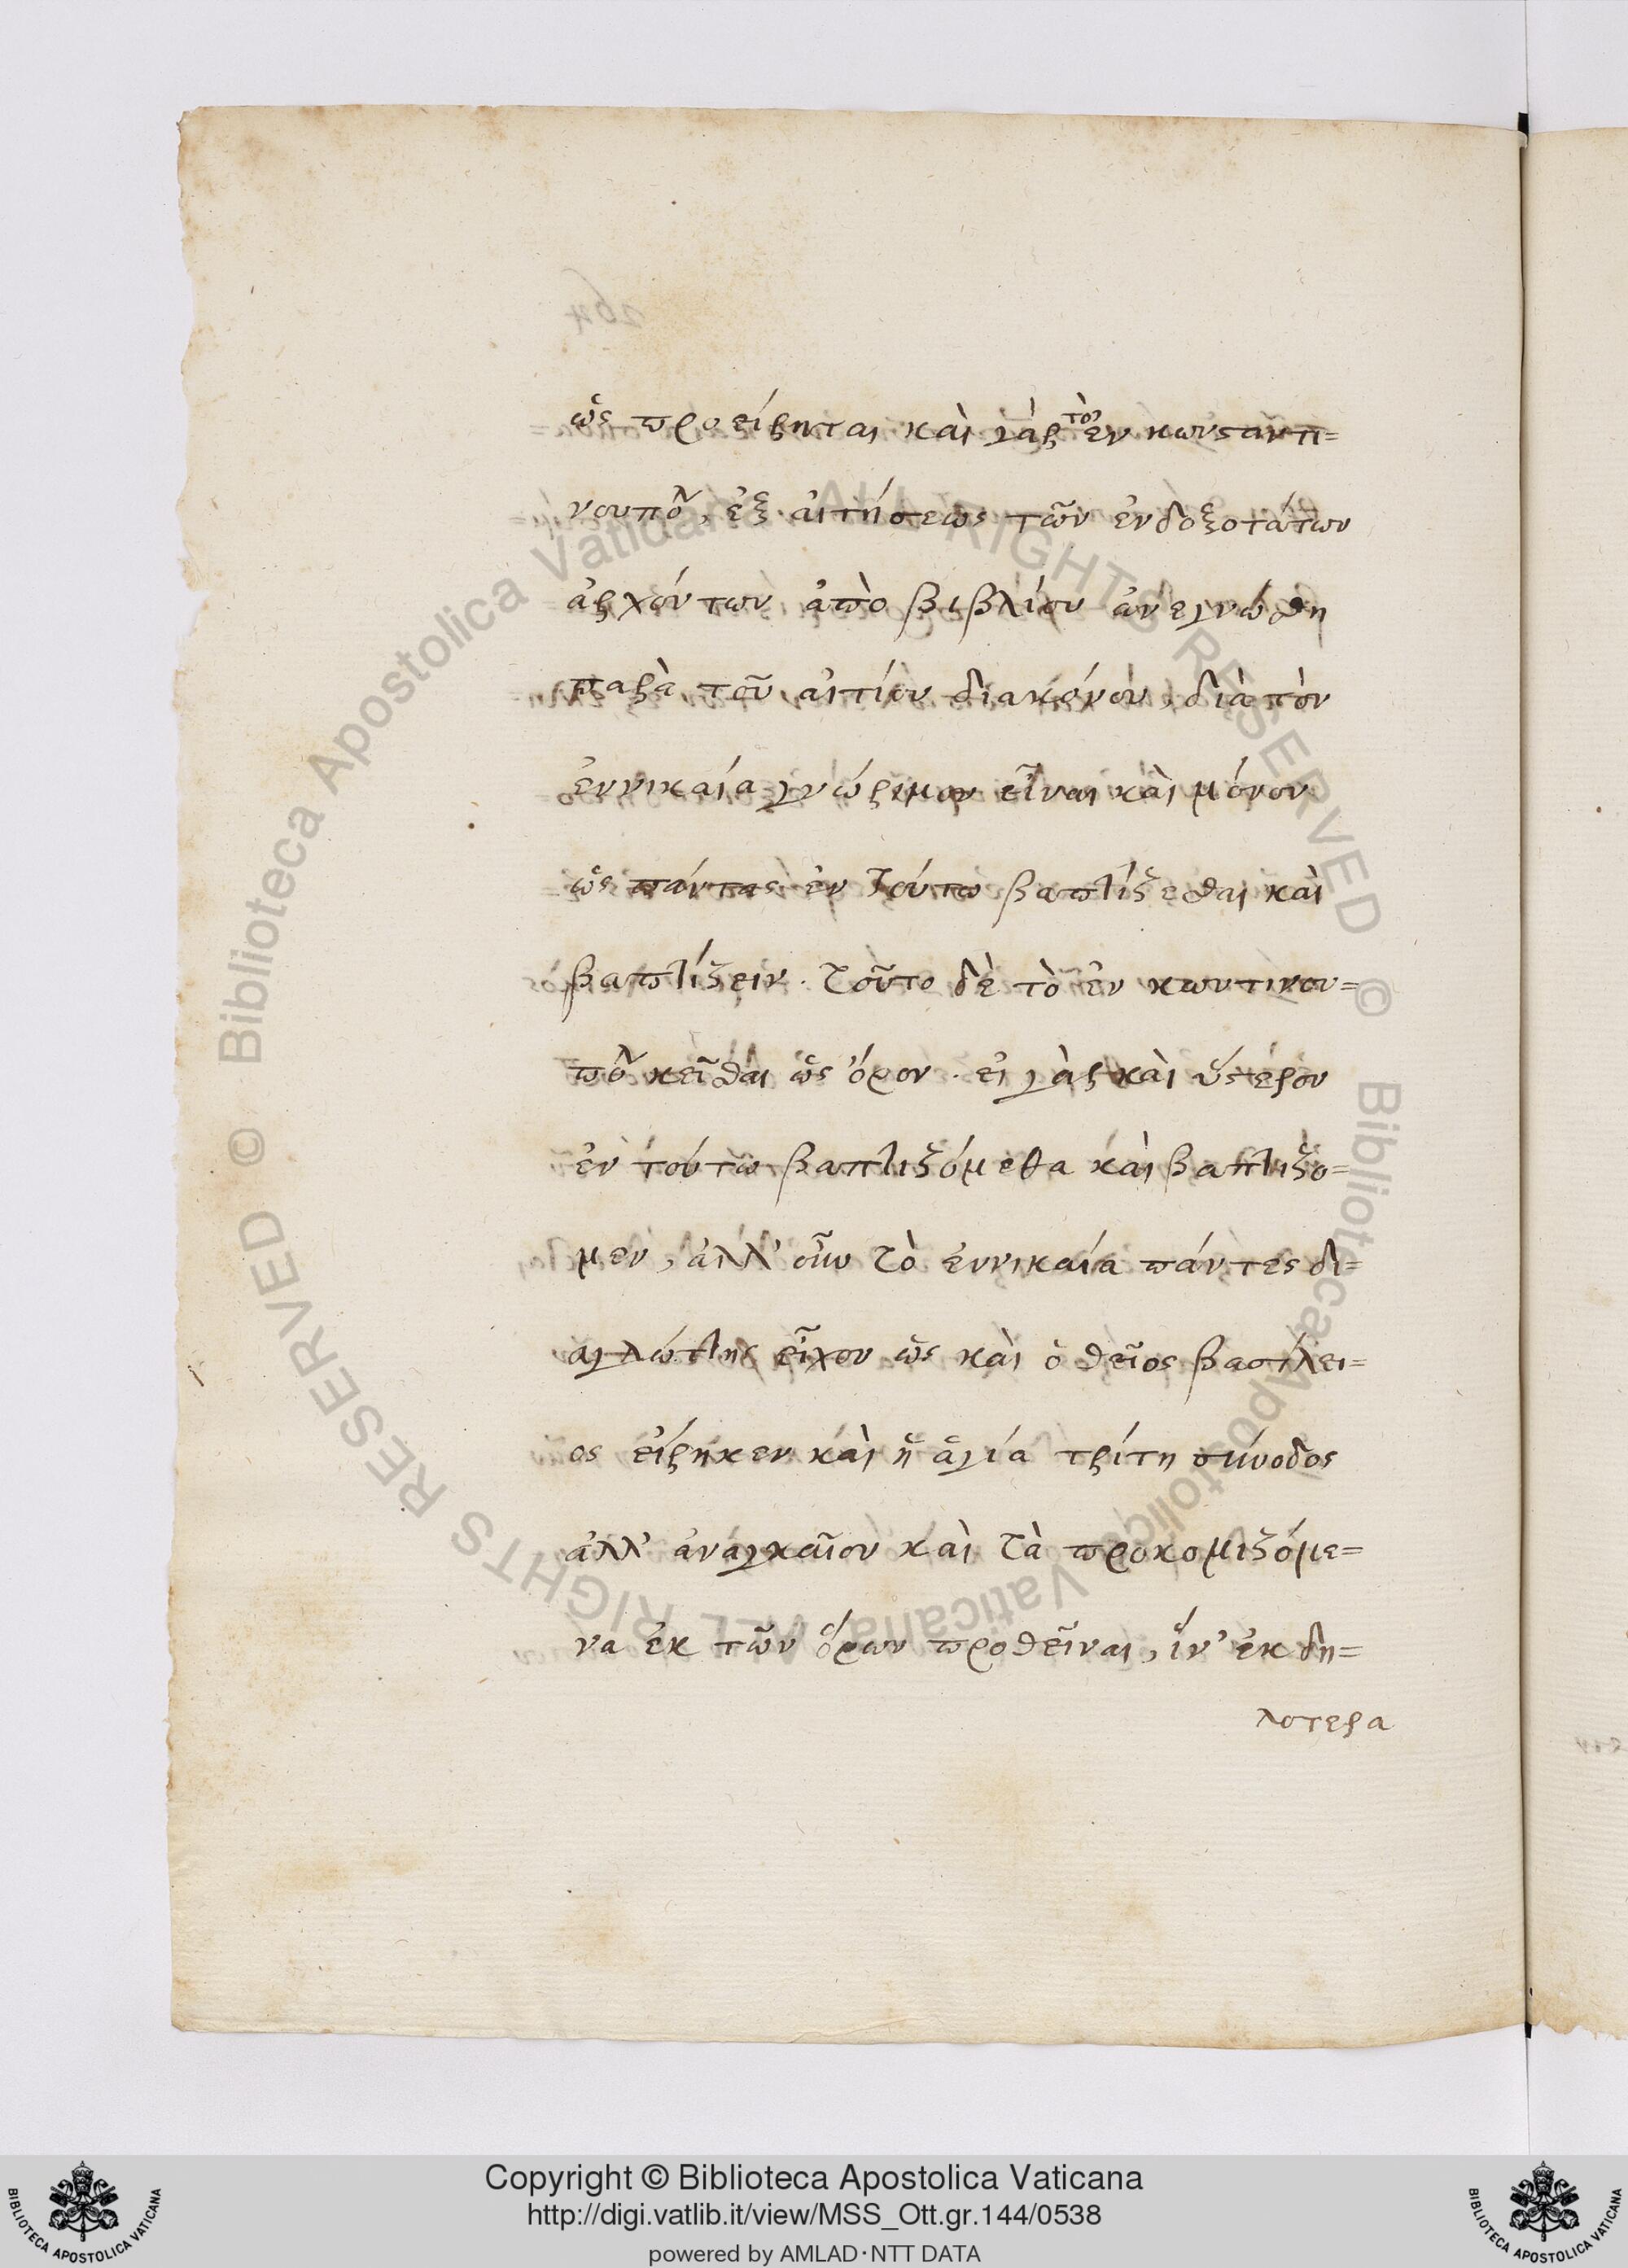 ὡς προείρηται καὶ γὰρ τὸ ἐν κωνσταντι=
νουπόλ, ἐξ αἰτήσεως τῶν ἐνδοξοτάτων
ἀρχόντων ἀπὸ βιβλίου ἀνεγνώσθη
παρὰ τοῦ αἰτίου διακόνου, διὰ τὸν
ἐννικαία γνώριμον εἶναι καὶ μόνον
ὡς πάντας ἐν τούτω βαπτίζεσθαι καὶ
βαπτίζειν. τοῦτο δὲ τὸ ἐν κωντινου=
πόλ κεῖσθαι ὡς ὅρον. εἰ γὰρ καὶ ὕστερον
ἐν τούτω βαπτιζόμεθα καὶ βαπτίζο=
μεν, ἀλλ' οὖν τὸ ἐννικαία πάντες δι=
αγλώττης εἶχον ὡς καὶ ὁ θεῖος βασίλει=
ος εἴρηκεν καὶ ἡ ἁγία τρίτη σύνοδος
ἀλλ' ἀναγκαῖον καὶ τὰ προκομιζόμε=
να ἐκ τῶν ὅρων προθεῖναι, ἵν' ἐκ δη=
λοτερα
264
© Biblioteca Apostolica Vaticana ALL RIGHTS RESERVED © Biblioteca Apostolica Vaticana ALL RIGHTS RESERVED
Copyright © Biblioteca Apostolica Vaticana
http://digi.vatlib.it/view/MSS_Ott.gr.144/0538
powered by AMLAD·NTT DATA
BIBLIOTECA APOSTOLICA VATICANA
BIBLIOTECA APOSTOLICA VATICANA